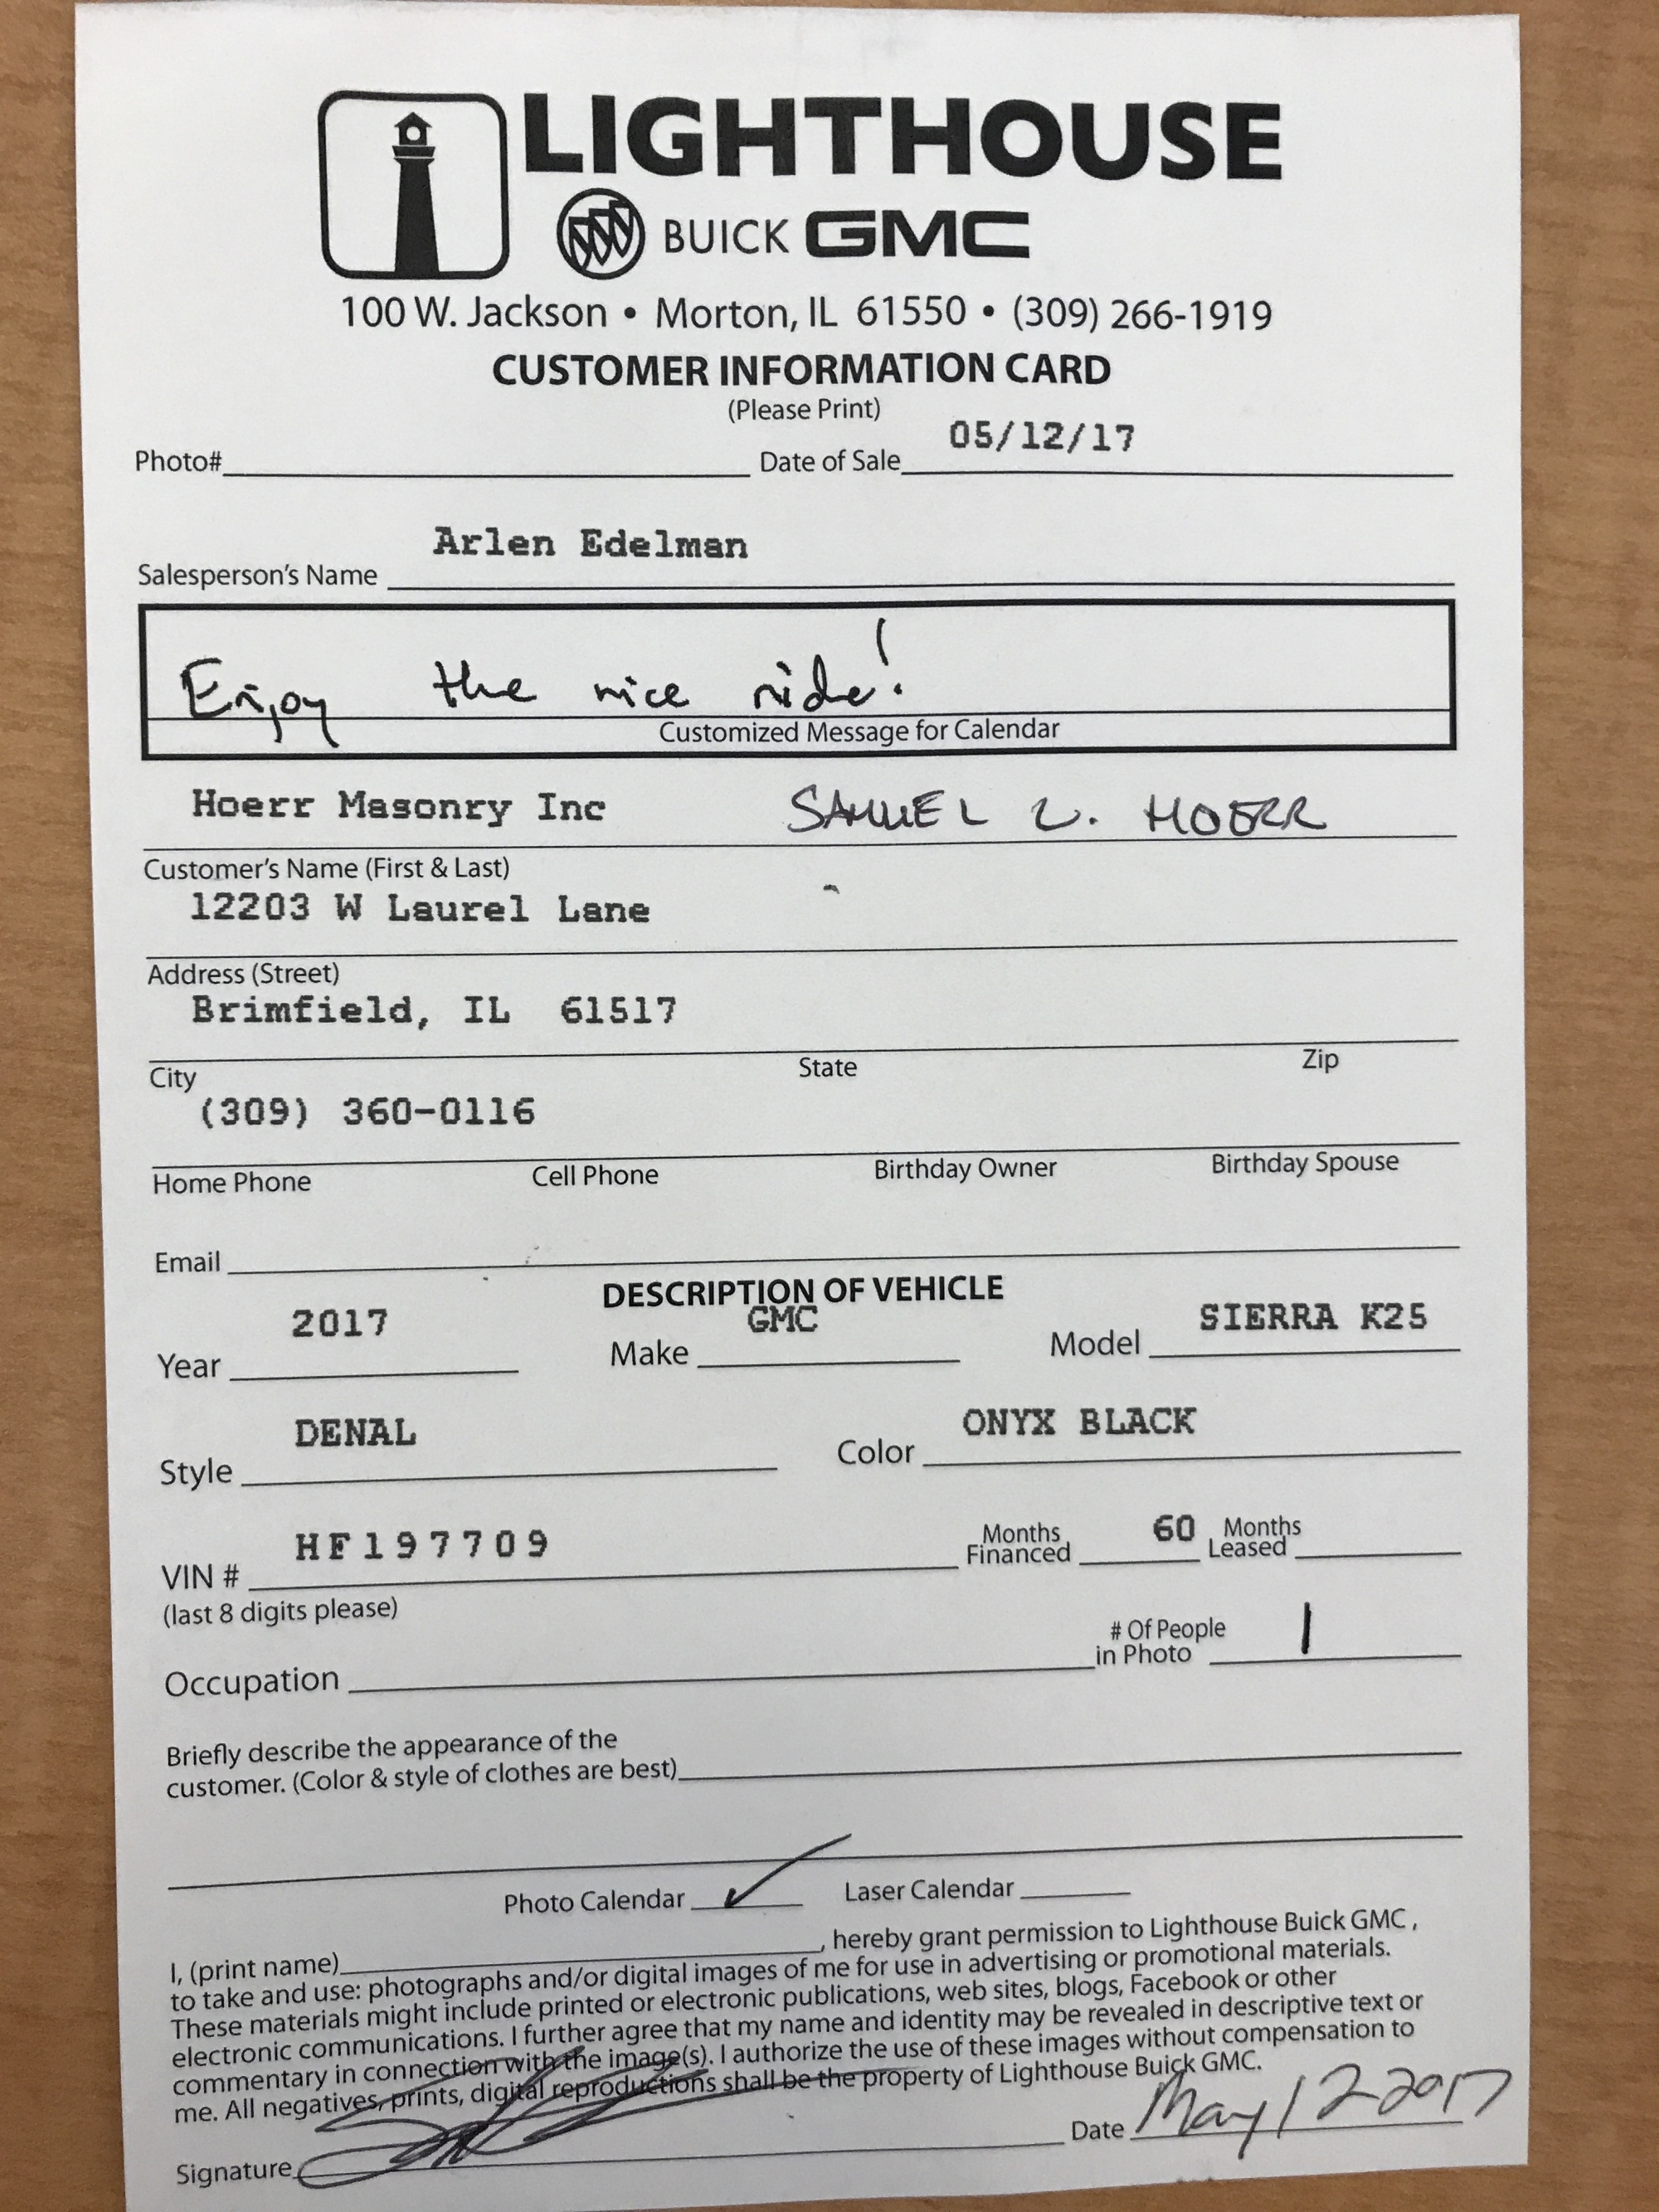 LIGHTHOUSE
BUICK GMC
100 W. Jackson • Morton, IL 61550 • (309) 266-1919
CUSTOMER INFORMATION CARD
(Please Print)
Photo# Date of Sale 05/12/17
Arlen Edelman
Salesperson's Name
Enjoy the nice ride!
Customized Message for Calendar
Hoerr Masonry Inc SAMUEL L. HOERR
Customer's Name (First & Last)
12203 W Laurel Lane
Address (Street)
Brimfield, IL 61517
City State Zip
(309) 360-0116
Home Phone Cell Phone Birthday Owner Birthday Spouse
Email
DESCRIPTION OF VEHICLE
Year 2017 Make GMC Model SIERRA K25
Style DENAL Color ONYX BLACK
VIN # HF197709 Months Financed 60 Months Leased
(last 8 digits please)
Occupation # Of People in Photo 1
Briefly describe the appearance of the
customer. (Color & style of clothes are best)
Photo Calendar ✓ Laser Calendar
I, (print name) , hereby grant permission to Lighthouse Buick GMC ,
to take and use: photographs and/or digital images of me for use in advertising or promotional materials.
These materials might include printed or electronic publications, web sites, blogs, Facebook or other
electronic communications. I further agree that my name and identity may be revealed in descriptive text or
commentary in connection with the image(s). I authorize the use of these images without compensation to
me. All negatives, prints, digital reproductions shall be the property of Lighthouse Buick GMC.
Signature Date May 12 2017